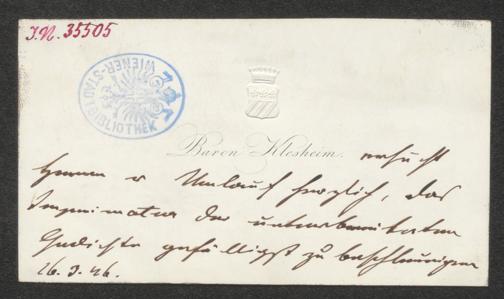 I.N. 35505
WIENER-STADTBIBLIOTHEK
Baron Klesheim. ersucht
Herrn v Umlauf herzlich, das
Imprimatur der unterbreiteten
Gedichte gefälligst zu beschleunigen
26. 3. 46.